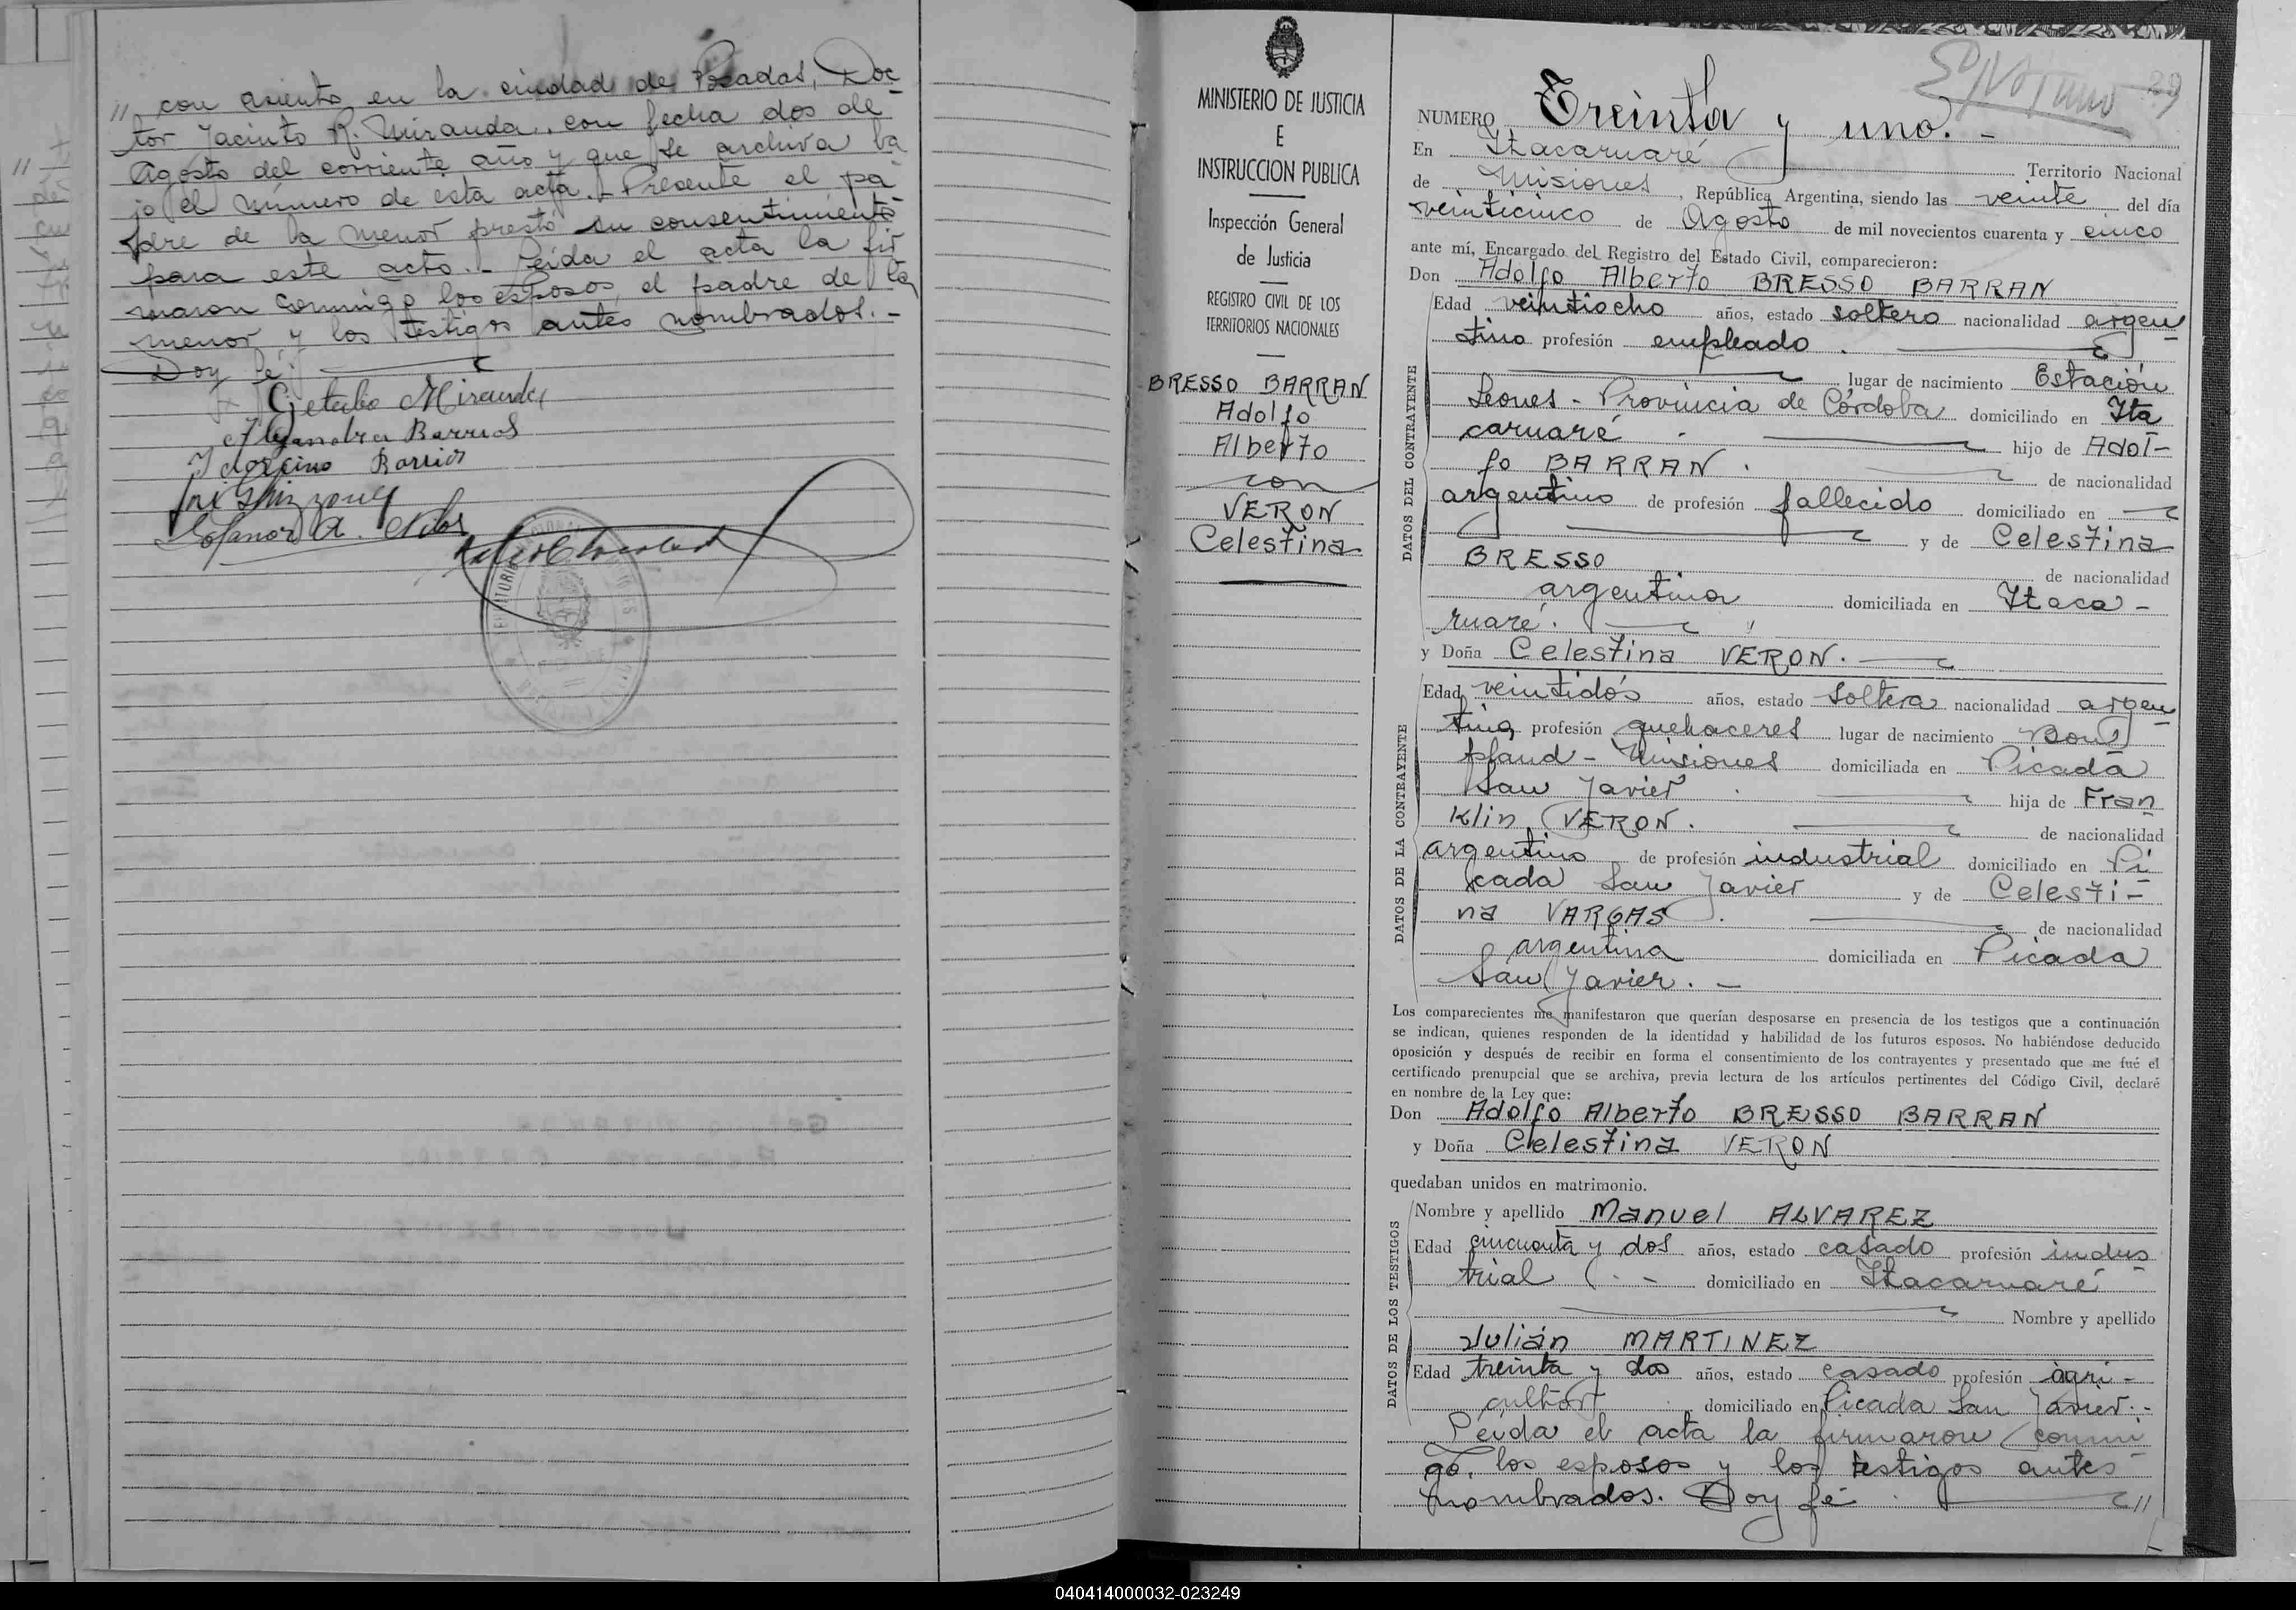 // con asiento en la ciudad de Posadas, Doc
tor Jacinto R. Miranda, con fecha dos de
Agosto del corriente año y que se archiva ba
jo el número de esta acta.- Presente el pa
dre de la menor prestó su consentimiento
para este acto.- Leida el acta la fir
maron conmigo los esposos, el padre de la
menor y los testigos antes nombrados.-
Doy fé.
Getulio Miranda
Alejandra Barrios
Barrios
MINISTERIO DE JUSTICIA
E
INSTRUCCION PUBLICA
Inspección General
de Justicia
REGISTRO CIVIL DE LOS
TERRITORIOS NACIONALES
BRESSO BARRAN
Adolfo
Alberto
con
VERON
Celestina
29
NUMERO Treinta y uno.-
En Itacaruaré Territorio Nacional
de Misiones, República Argentina, siendo las veinte del día
veinticinco de Agosto de mil novecientos cuarenta y cinco
ante mí, Encargado del Registro del Estado Civil, comparecieron:
Don Adolfo Alberto BRESSO BARRAN
DATOS DEL CONTRAYENTE
Edad veintiocho años, estado soltero nacionalidad argen
tino profesión empleado.
lugar de nacimiento Estación
Leones - Provincia de Córdoba domiciliado en Ita
caruaré hijo de Adol-
fo BARRAN. de nacionalidad
argentino de profesión fallecido domiciliado en —
y de Celestina
BRESSO de nacionalidad
argentina domiciliada en Itaca-
ruaré.
y Doña Celestina VERON.
DATOS DE LA CONTRAYENTE
Edad veintidós años, estado soltera nacionalidad argen
tina profesión quehaceres lugar de nacimiento Bom
pland - Misiones domiciliada en Picada
San Javier hija de Fran
klin VERON. de nacionalidad
argentino de profesión industrial domiciliado en Pi
cada San Javier y de Celesti-
na VARGAS. de nacionalidad
argentina domiciliada en Picada
San Javier.-
Los comparecientes me manifestaron que querían desposarse en presencia de los testigos que a continuación
se indican, quienes responden de la identidad y habilidad de los futuros esposos. No habiéndose deducido
oposición y después de recibir en forma el consentimiento de los contrayentes y presentado que me fué el
certificado prenupcial que se archiva, previa lectura de los artículos pertinentes del Código Civil, declaré
en nombre de la Ley que:
Don Adolfo Alberto BRESSO BARRAN
y Doña Celestina VERON
quedaban unidos en matrimonio.
DATOS DE LOS TESTIGOS
Nombre y apellido Manuel ALVAREZ
Edad cincuenta y dos años, estado casado profesión indus
trial.- domiciliado en Itacaruaré
Nombre y apellido
Julián MARTINEZ
Edad treinta y dos años, estado casado profesión agri-
cultor domiciliado en Picada San Javier.-
Leida el acta la firmaron conmi
go, los esposos y los testigos antes
nombrados. Doy fé. //
040414000032-023249